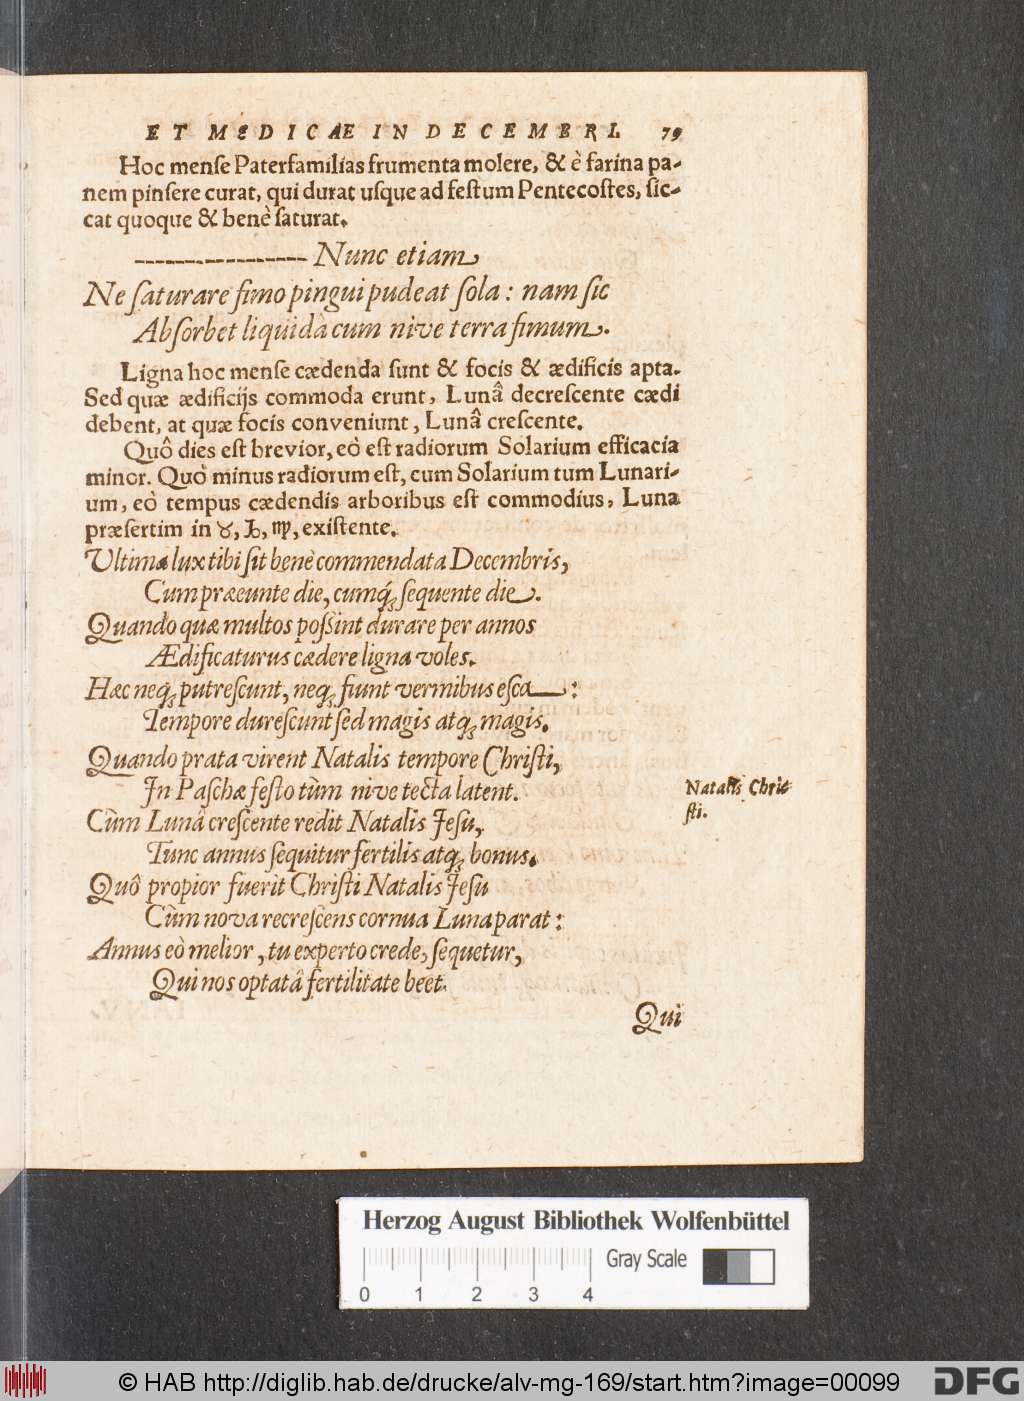 ET MEDICÆ IN DECEMBRI. 79
Hoc menſe Paterfamiliàs frumenta molere, & è farina pa-
nem pinſere curat, qui durat uſque ad feſtum Pentecoſtes, ſic-
cat quoque & benè ſaturat.
---------------- Nunc etiam
Ne ſaturare fimo pingui pudeat ſola: nam ſic
Abſorbet liquidà cum nive terra fimum.
Ligna hoc menſe cædenda ſunt & focis & ædificis apta.
Sed quæ ædificijs commoda erunt, Lunâ decreſcente cædi
debent, at quæ focis conveniunt, Lunâ creſcente.
Quô dies eſt brevior, eò eſt radiorum Solarium efficacia
minor. Quò minus radiorum eſt, cum Solarium tum Lunari-
um, eò tempus cædendis arboribus eſt commodius, Luna
præſertim in ♉, ♑, ♍, exiſtente.
Ultima lux tibi ſit benè commendata Decembris,
Cum præeunte die, cumq́; ſequente die.
Quando quæ multos poſsint durare per annos
Ædificaturus cædere ligna voles.
Hæc neq́; putreſcunt, neq́; fiunt vermibus eſca:
Tempore dureſcunt ſed magis atq́; magis.
Quando prata virent Natalis tempore Chriſti,
In Paſchæ feſto tùm nive tecta latent.
Natalis Chri-
ſti.
Cùm Lunâ creſcente redit Natalis Jeſu,
Tunc annus ſequitur fertilis atq́; bonus.
Quô propior fuerit Chriſti Natalis Jeſu
Cùm nova recreſcens cornua Luna parat:
Annus eò melior, tu experto crede, ſequetur,
Qui nos optatâ fertilitate beet.
Qui
Herzog August Bibliothek Wolfenbüttel
Gray Scale
0 1 2 3 4
© HAB http://diglib.hab.de/drucke/alv-mg-169/start.htm?image=00099
DFG